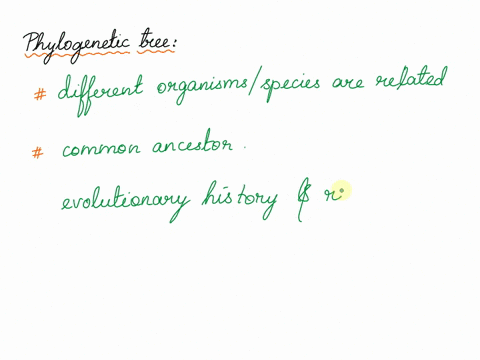 Phylogenetic tree:
# different organisms/species are related
# common ancestor.
evolutionary history & r